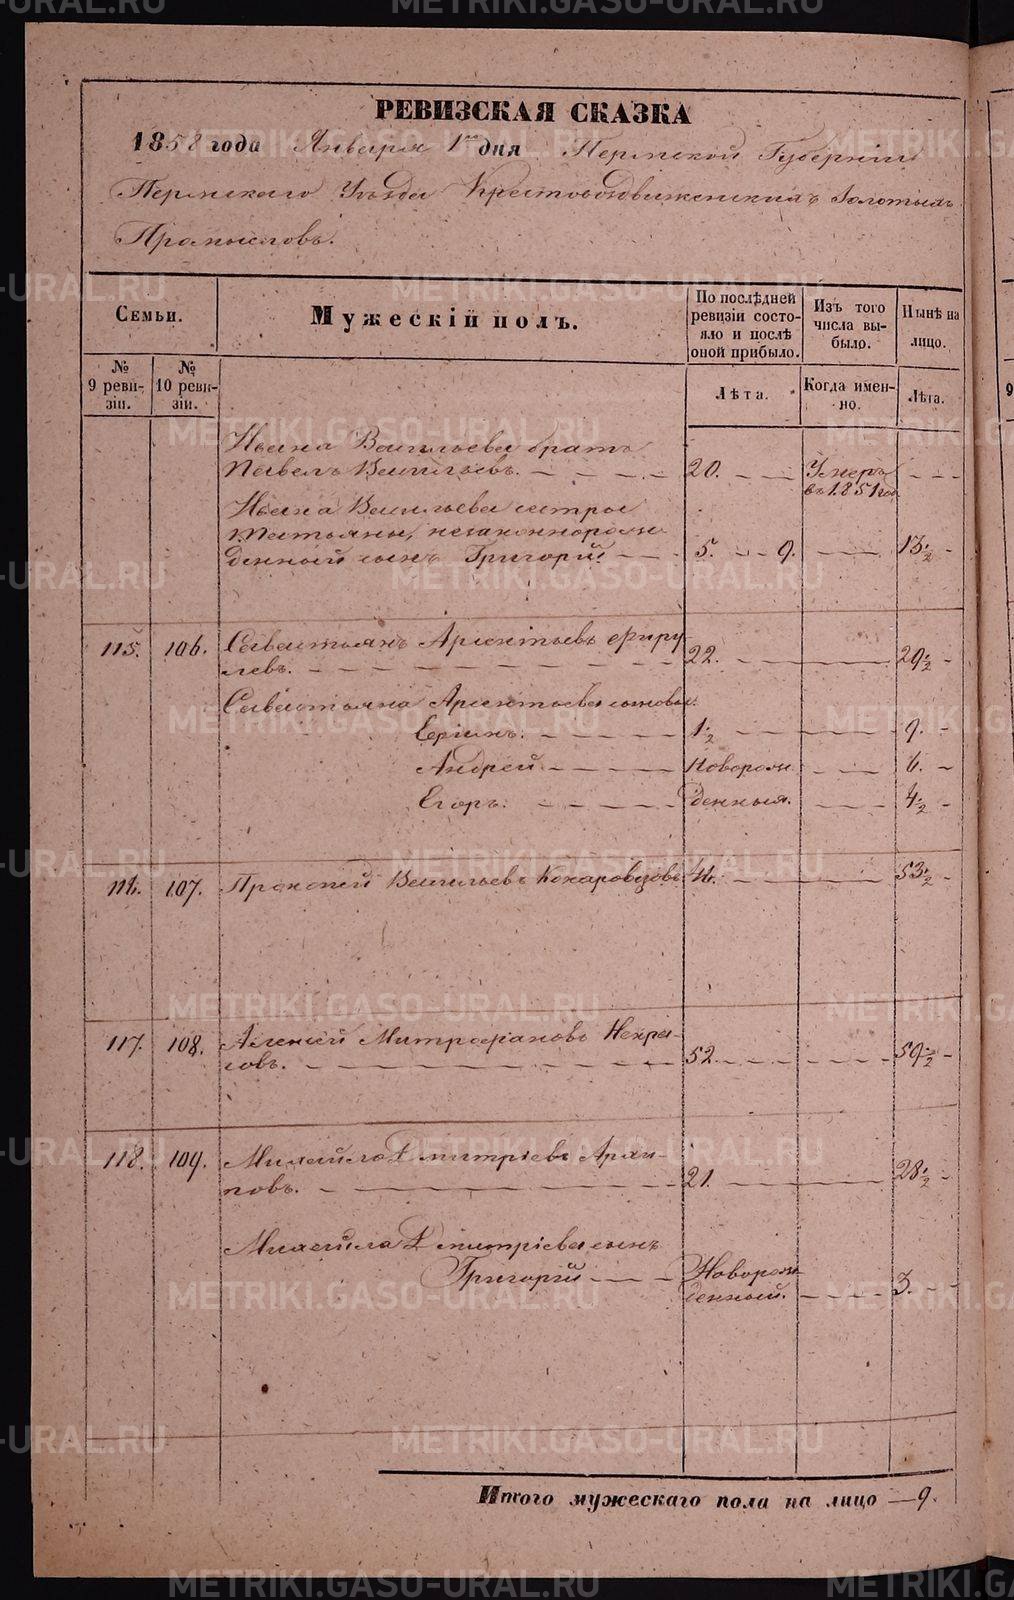 METRIKI.GASO-URAL.RU
РЕВИЗСКАЯ СКАЗКА
1858 года Января 1го дня Пермской Губерніи
Пермскаго Уѣзда Крестовоздвиженскихъ Золотыхъ
Промысловъ.
Семьи.
Мужескій полъ.
По послѣдней ревизіи состояло и послѣ оной прибыло.
Изъ того числа выбыло.
Нынѣ на лицо.
№ 9 ревизіи.
№ 10 ревизіи.
Лѣта.
Когда именно.
Лѣта.
Ивана Васильева братъ
Павелъ Васильевъ. 20. Умеръ въ 1851 год
Ивана Васильева сестры
Татьяны, незаконнорож-
денный сынъ Григорій 5. 9. 13 1/2
115. 106. Савастьянъ Арсентьевъ Фиру-
левъ. 22. 29 1/2
Савастьяна Арсентьева сыновья:
1/2 9.
Андрей Новорож 6.
Егоръ. денныя. 4 1/2
116. 107. Прокопей Васильевъ 53 1/2
117. 108. Алексей Митрофановъ Некра-
совъ. 52. 59 1/2
118. 109. Михайло Дмитріевъ Архи-
повъ. 21. 28 1/2
Михайла Дмитріева сынъ
Григорій Новорож-
денный. 3.
Итого мужескаго пола на лицо — 9.